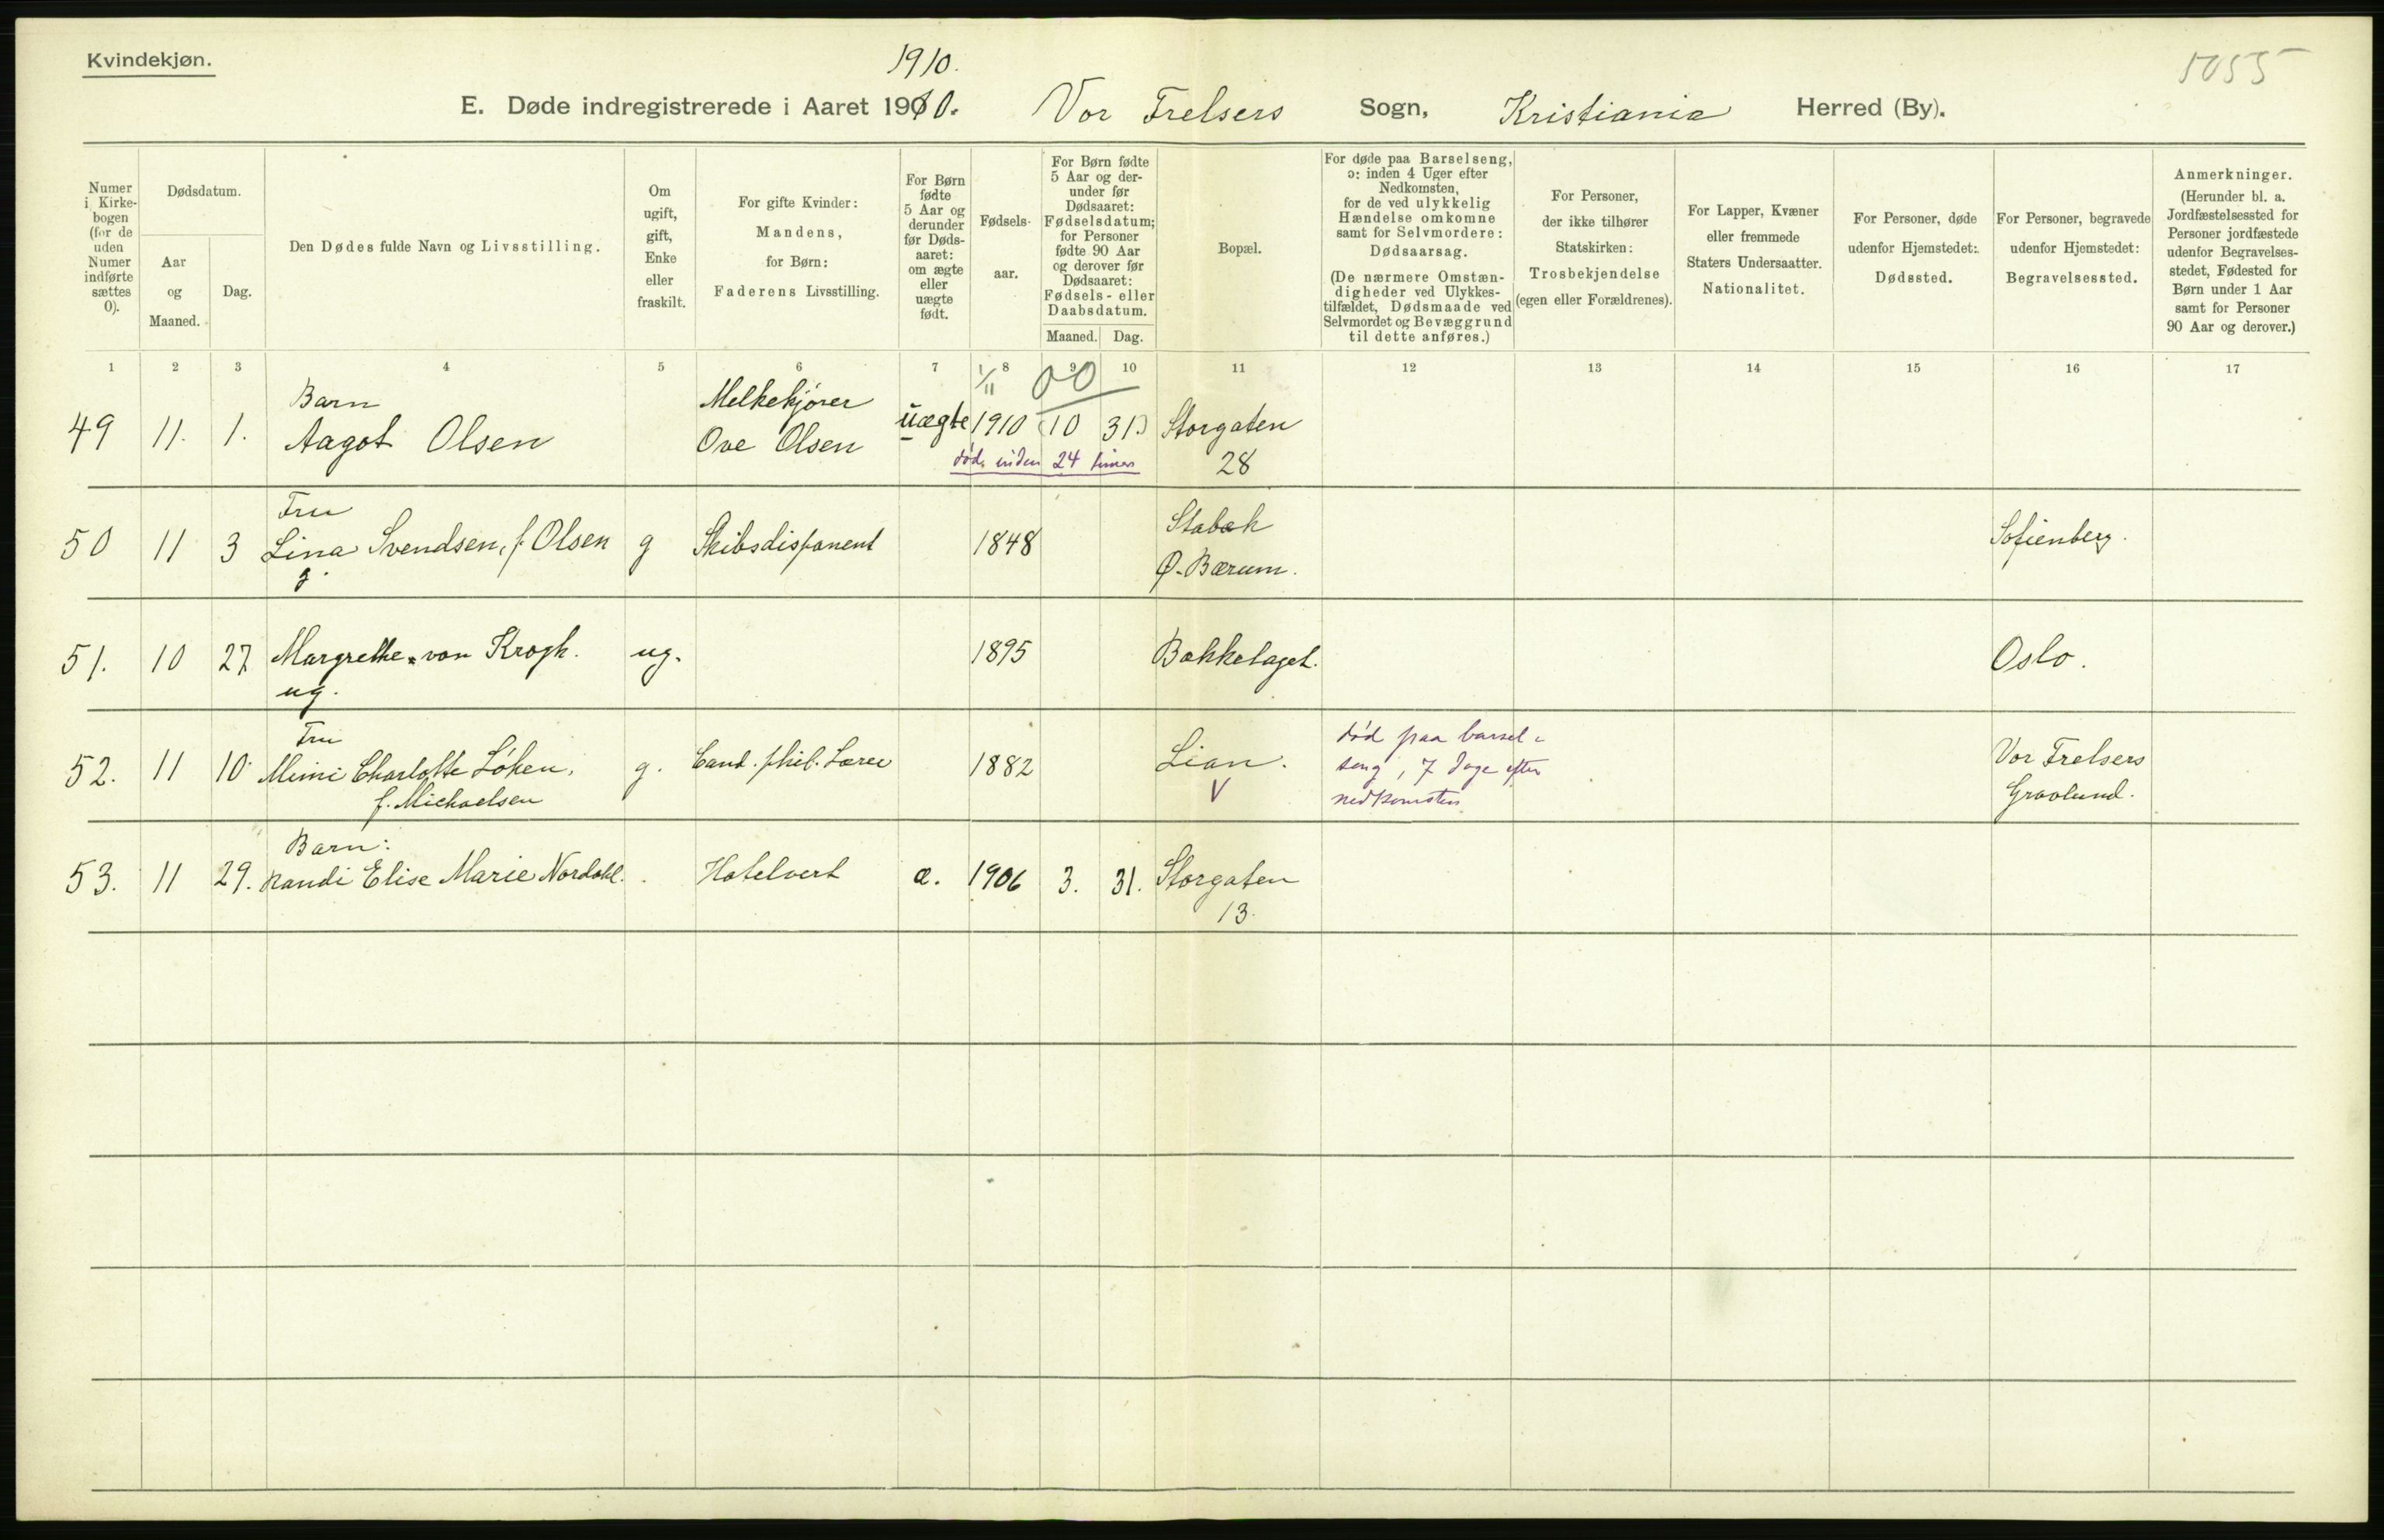 Kvindekjøn.
1910.
5055
E. Døde indregistrerede i Aaret 1910. Vor Frelsers Sogn, Kristiania Herred (By).
Numer
i Kirke-
bogen
(for de
uden
Numer
indførte
sættes
0).
Dødsdatum.
Aar
og
Maaned.
Dag.
Den Dødes fulde Navn og Livsstilling.
Om
ugift,
gift,
Enke
eller
fraskilt.
For gifte Kvinder:
Mandens,
for Børn:
Faderens Livsstilling.
For Børn
fødte
5 Aar og
derunder
før Døds-
aaret:
om ægte
eller
uægte
født.
Fødsels-
aar.
For Børn fødte
5 Aar og der-
under før
Dødsaaret:
Fødselsdatum;
for Personer
fødte 90 Aar
og derover før
Dødsaaret:
Fødsels- eller
Daabsdatum.
Maaned. Dag.
Bopæl.
For døde paa Barselseng,
ɔ: inden 4 Uger efter
Nedkomsten,
for de ved ulykkelig
Hændelse omkomne
samt for Selvmordere:
Dødsaarsag.
(De nærmere Omstæn-
digheder ved Ulykkes-
tilfældet, Dødsmaade ved
Selvmordet og Bevæggrund
til dette anføres.)
For Personer,
der ikke tilhører
Statskirken:
Trosbekjendelse
(egen eller Forældrenes).
For Lapper, Kvæner
eller fremmede
Staters Undersaatter.
Nationalitet.
For Personer, døde
udenfor Hjemstedet:
Dødssted.
For Personer, begravede
udenfor Hjemstedet:
Begravelsessted.
Anmerkninger.
(Herunder bl. a.
Jordfæstelsessted for
Personer jordfæstede
udenfor Begravelses-
stedet, Fødested for
Børn under 1 Aar
samt for Personer
90 Aar og derover.)
1 2 3 4 5 6 7 8 9 10 11 12 13 14 15 16 17
1/11 00
Barn Melkekjører
49 11. 1. Aagot Olsen Ove Olsen uægte 1910 (10 31) Storgaten
død inden 24 timer 28
Fru Stabæk
50 11 3 Lina Svendsen, f. Olsen g Skibsdisponent 1848 Sofienberg.
g. Ø. Bærum.
51. 10 27 Margrethe von Krogh. ug. 1895 Bækkelaget. Oslo.
ug.
Fru død paa barsel-
52. 11 10 Mimi Charlotte Løken, g. Cand. phil. Lærer 1882 Lian. seng, 7 dage efter Vor Frelsers
f. Michaelsen V nedkomsten Gravlund.
Barn:
53. 11 29. Randi Elise Marie Nordahl. Hotelvert æ. 1906 3. 31. Storgaten
13.